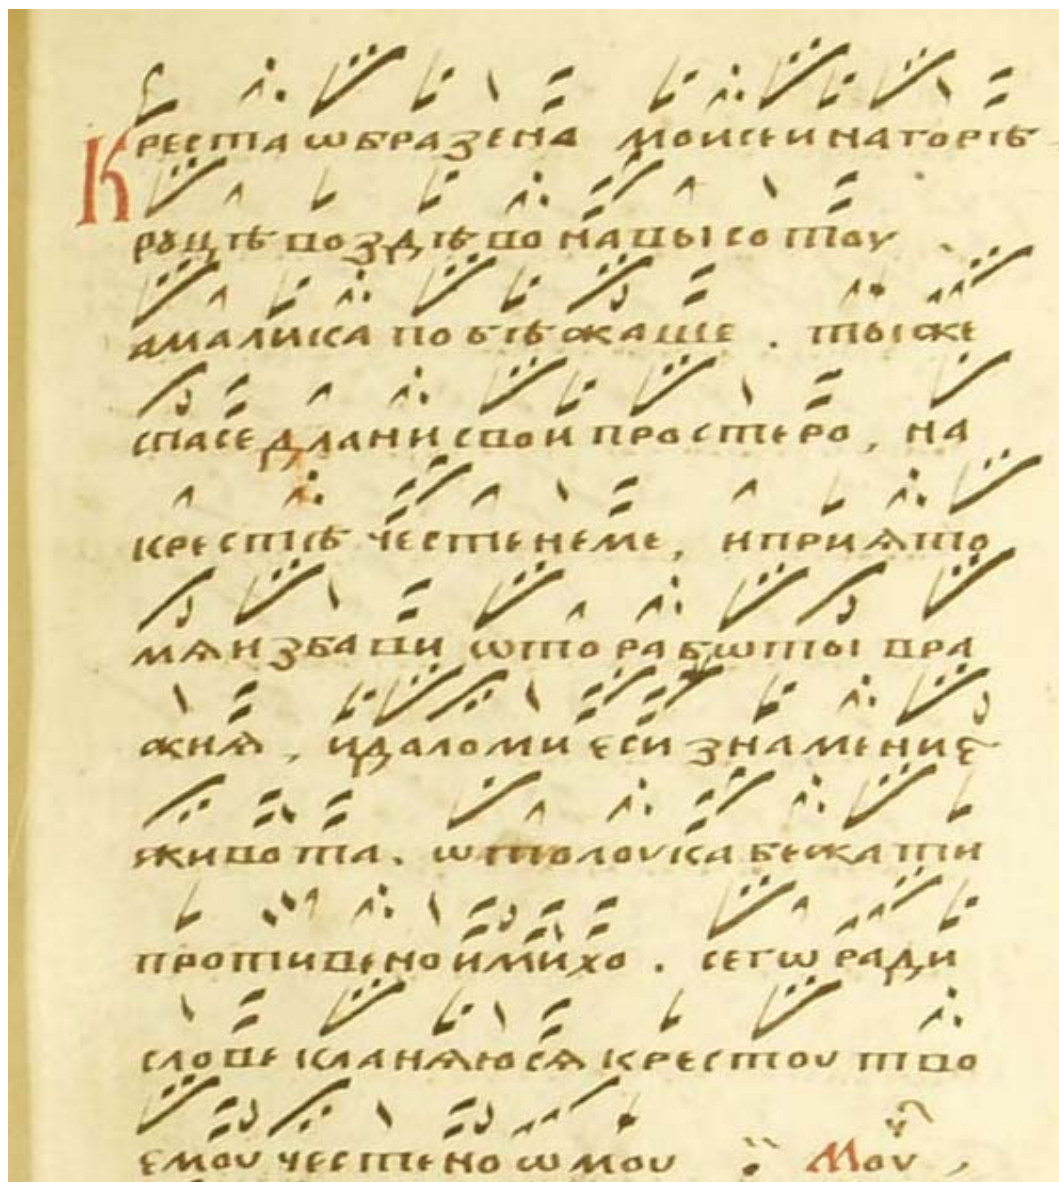 Креста ѡбразена моисеи на горѣ
руцѣ воздѣво на высотоу
амалика побѣжаше . ты же
спасе длани свои простеро , на
крестѣ честенеме , и прия̑то
мѧ избави ѡто работы вра
жиѧ , и дало ми еси знамение
живота . ѡто лоука бежати
противеноимихо . сегѡ ради
слове кланѧюсѧ крестоу тво
емоу честеноѡмоу : Моу ,